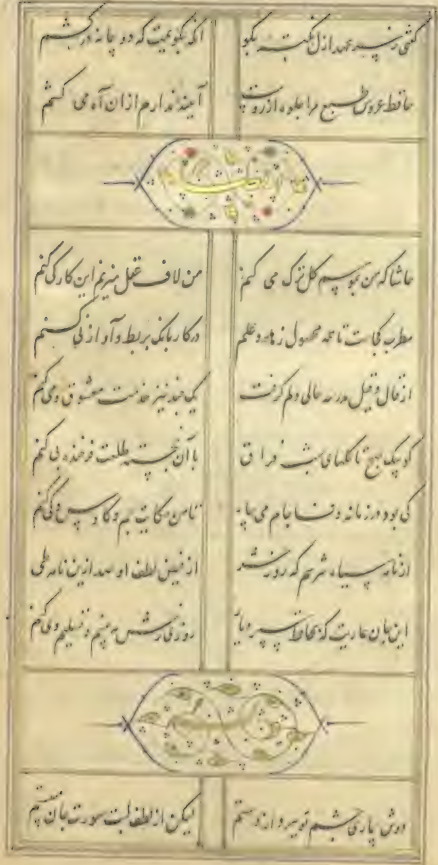 گفتی ز سر عهد ازل نکته بگو آنگه بگویمت که دو پیمانه درکشم
حافظ عروس طبع مرا جلوه آرزوست آیینه ندارم از آن آه می کشم
حاشا که من بموسم گل ترک می کنم من لاف عقل میزنم این کار کی کنم
مطرب کجاست تا همه محصول زهد و علم در کار بانگ بربط و آواز نی کنم
از قال و قیل مدرسه حالی دلم گرفت یک چند نیز خدمت معشوق و می کنم
کو پیک صبح تا گلهای شب فراق با آن خجسته طلعت فرخنده پی کنم
کی بود در زمانه وفا جام می بیار تا من حکایت جم و کاوس و کی کنم
از نامه سیاه نترسم که روز حشر از فیض لطف او صد ازین نامه طی کنم
این جان عاریت که بحافظ سپرد یار روزی رخش ببینم و تسلیم وی کنم
دوش بیماری چشم تو ببرد از دستم لیکن از لطف لبت صورت جان می بستم